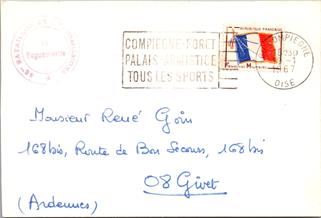 Vaguemestre
COMPIEGNE-FORET
PALAIS-ARMISTICE
TOUS LES SPORTS
REPUBLIQUE FRANÇAISE
COMPIEGNE
1967
OISE
Monsieur René Goin
168bis, Route de Bon Secours, 168bis
08 Givet
(Ardennes)